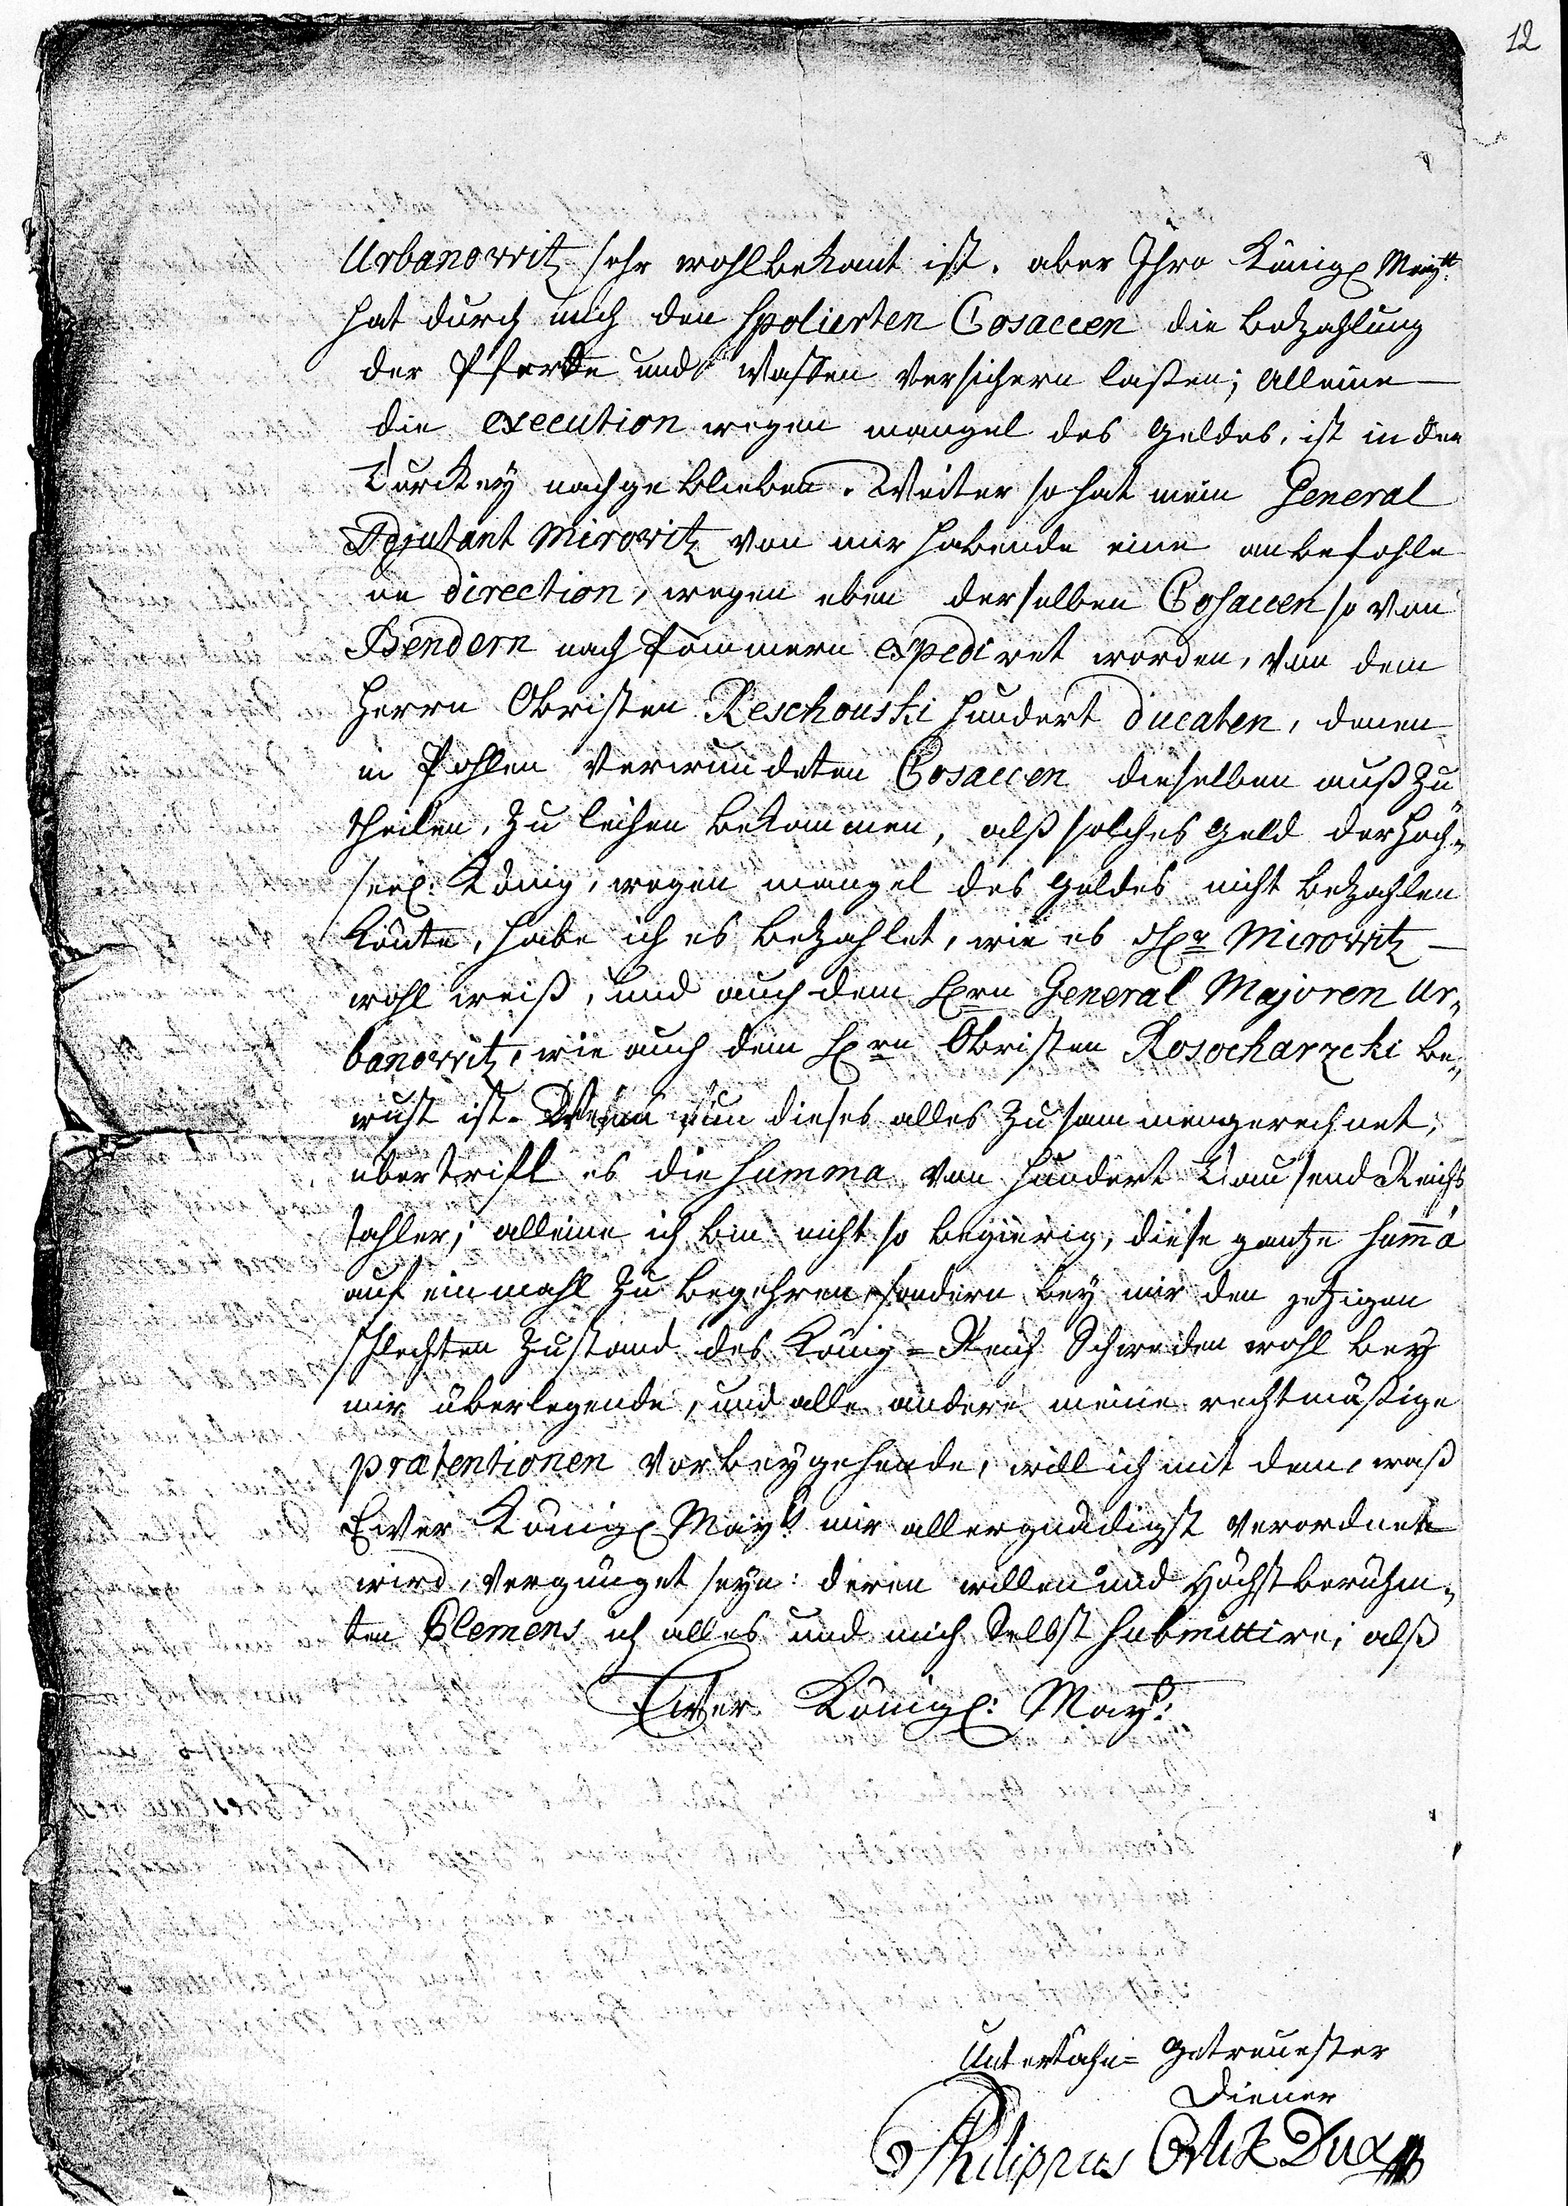 12
Urbanowitz sehr wohlbekant ist, aber Ihro Königl Maytt.
hat durch mich den spolierten Cosaccen die betzahlung
der Pferde und Waffen versichern laßen; Alleine
die execution wegen mangel des Geldes, ist in der
Turckey nachgeblieben. Weiter so hat mein General
Adjutant Mirowitz von mir habende eine anbefohle
ne direction, wegen eben derselben Cosaccen so von
Bendern nach Pommern expediret worden, von dem
Herrn Obristen Reschouski hundert ducaten, denen
in Pohlen verwundeten Cosaccen dieselben auß zu
theilen, zu leihen bekommen, alß solches Geld der höch-
seel: König, wegen mangel des Geldes nicht betzahlen
könte, habe ich es betzahlet, wie es Hr Mirowitz
wohl weiß, und auch dem Hrn General Majoren Ur-
banowitz, wie auch dem Hrn Obristen Rosocharzcki be-
wust ist. Wenn nun dieses alles zusammengerechnet,
übertrift es die Summa von hundert Tausend Reichs
tahler; alleine ich bin nicht so begierig, diese gantze Summa
auf einmahl zu begehren, sondern bey mir den jetzigen
schlechten Zustand des König-Reich Schweden wohl bey
mir überlegende, und alle andere meine rechtmäßige
prætentionen vorbeygehende, will ich mit dem, waß
Ewer Königl Maytt mir allergnädigst verordnen
wird, vergnüget seyn: deren willen und Höchstberühm-
ten Clemens ich alles und mich Selbst submittire; alß
Ewer Königl: Maytt:
Unterthän- Getreuester
Diener
Philippus Orlik Dux